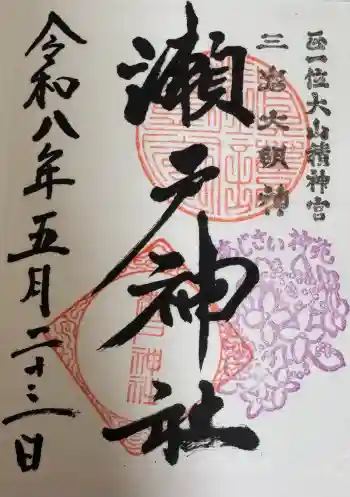 正一位大山積神宮
三嶋大明神
瀬戸神社
あじさい神苑
令和八年五月二十三日